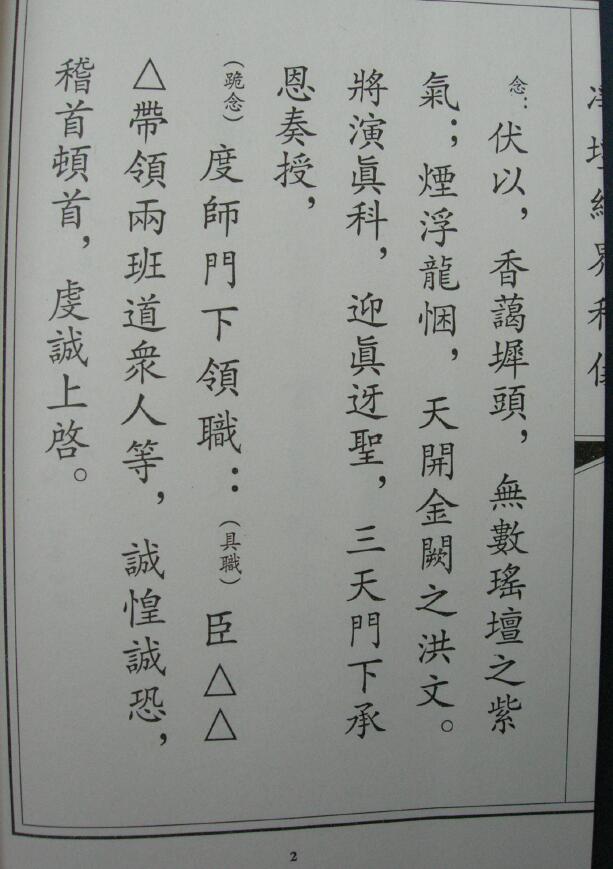 念：伏以，香藹墀頭，無數瑤壇之紫
氣；煙浮龍悃，天開金闕之洪文。
將演眞科，迎眞迓聖，三天門下承
恩奏授，
（跪念）度師門下領職：（具職）臣△△
△帶領兩班道衆人等，誠惶誠恐，
稽首頓首，虔誠上啓。
2